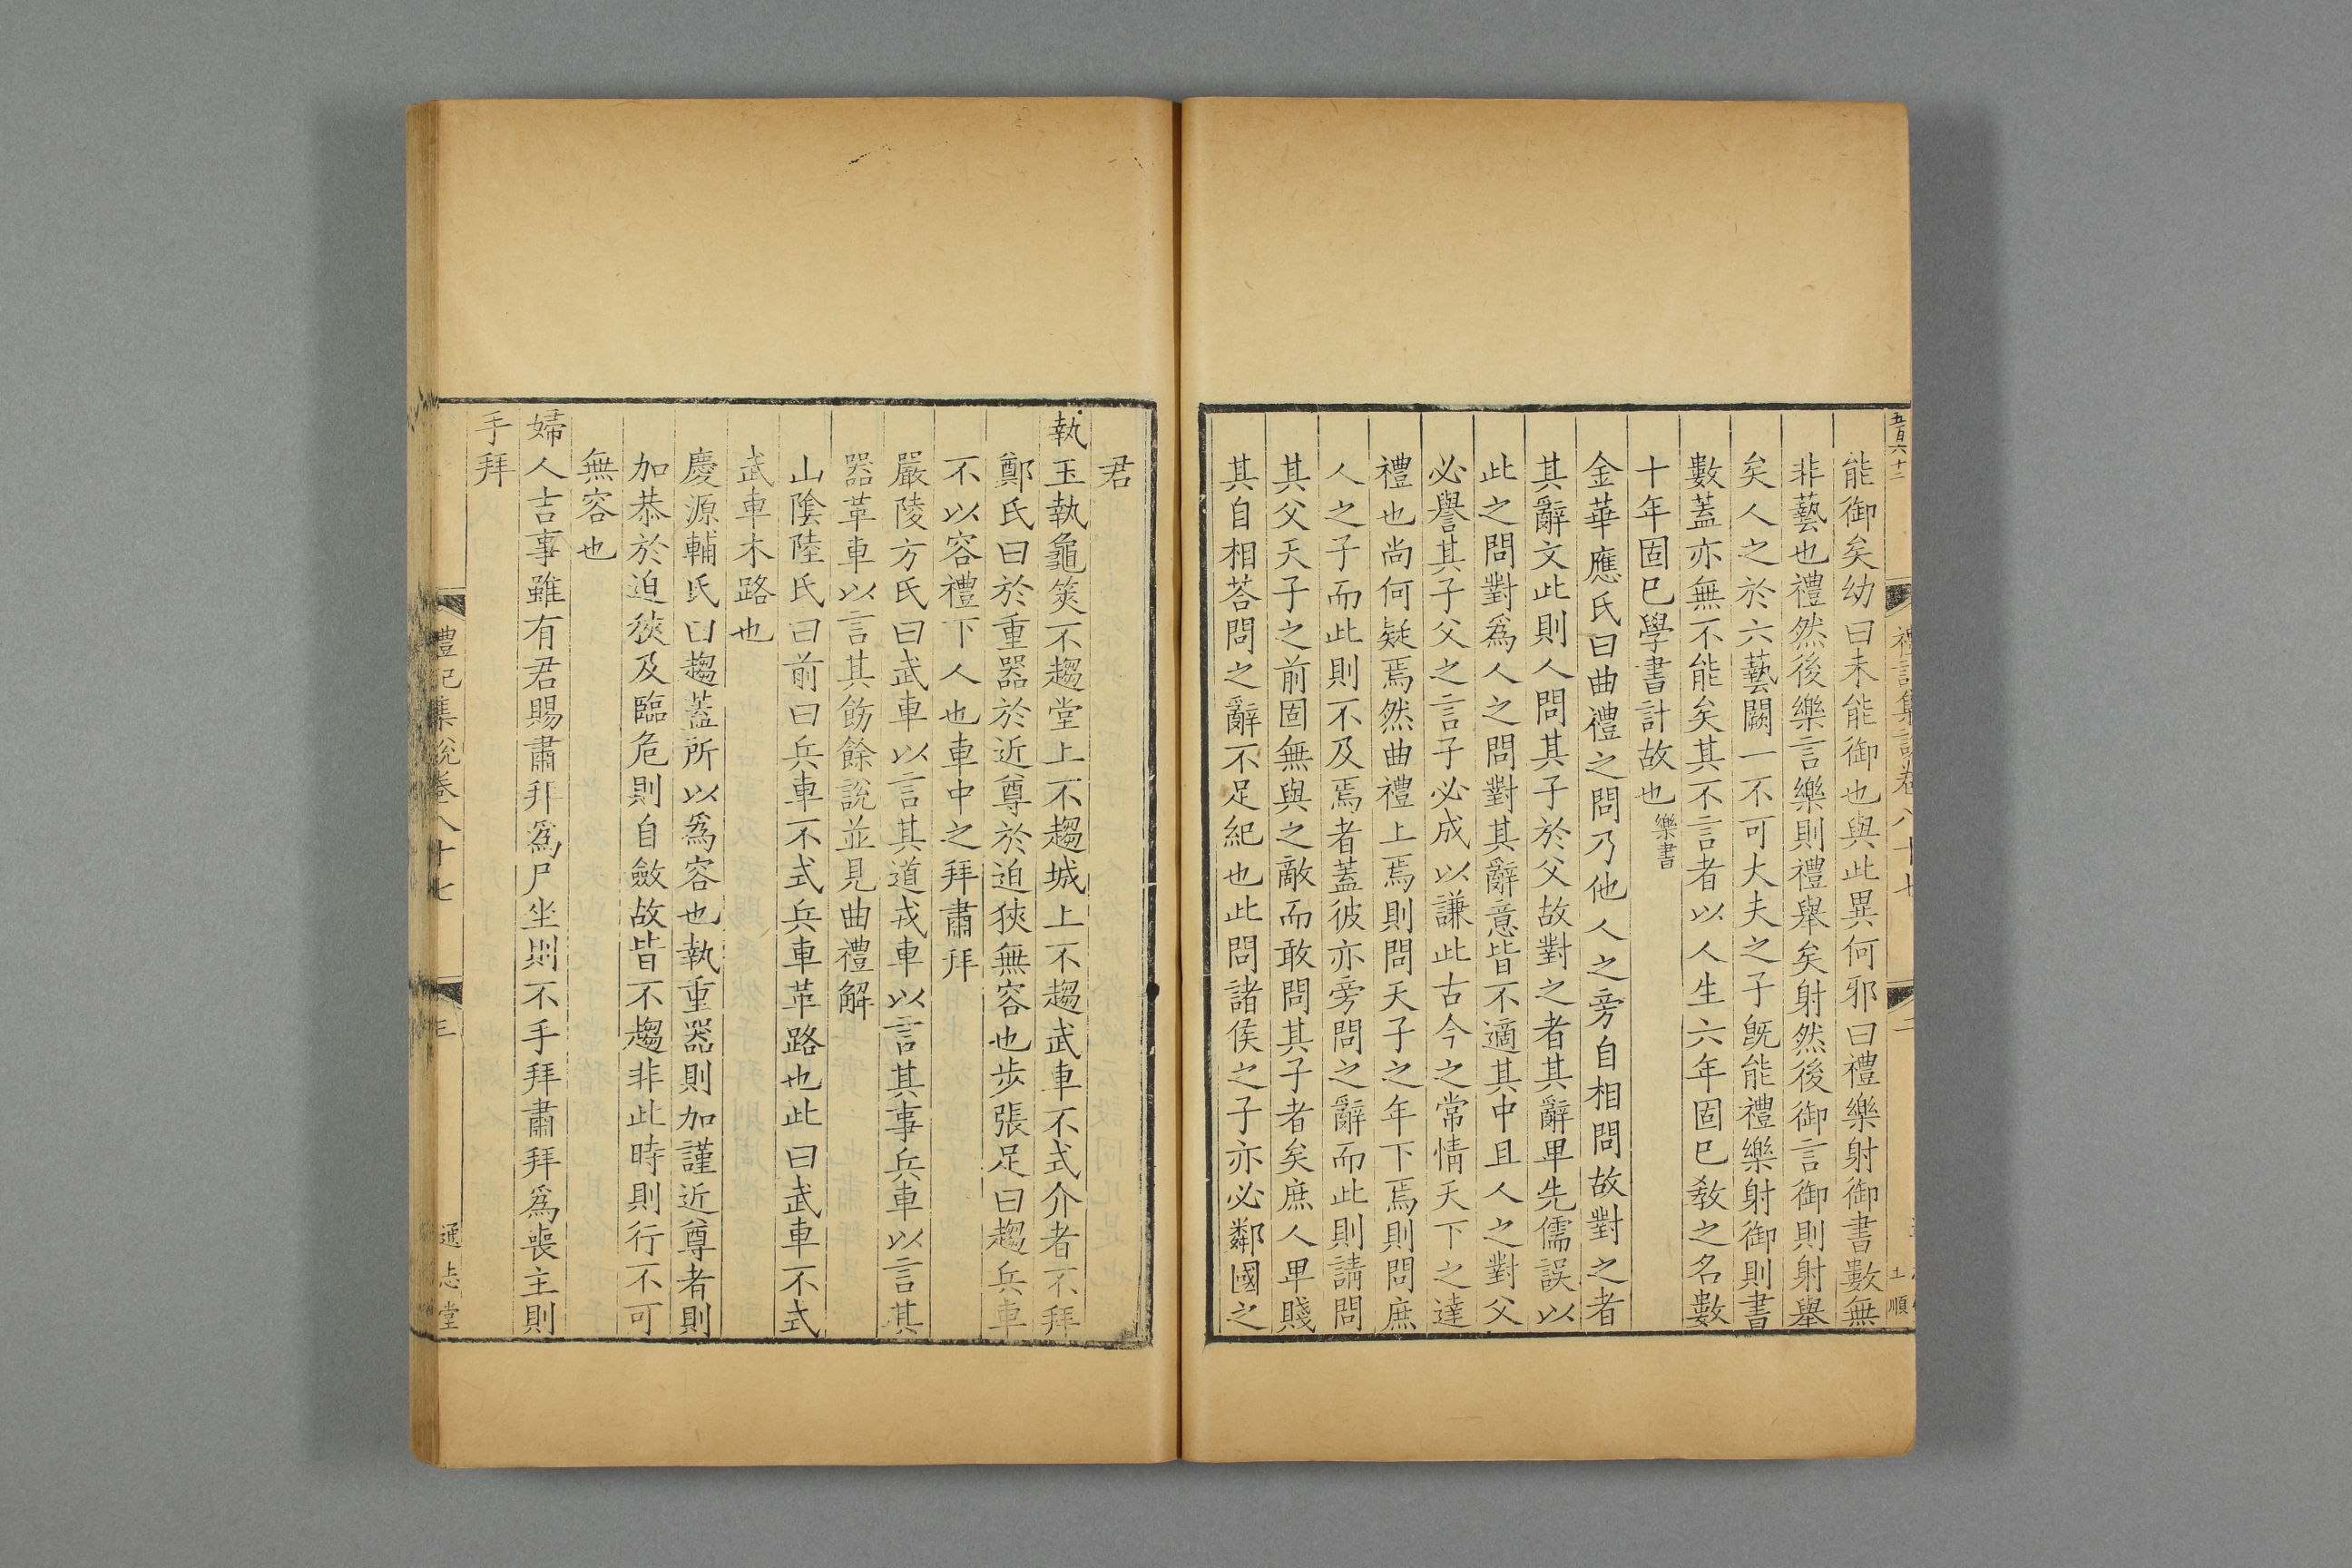 五百六十二
禮記集說卷八十七
二
土順
能御矣幼曰未能御也與此異何邪曰禮樂射御書數無
非藝也禮然後樂言樂則禮舉矣射然後御言御則射舉
矣人之於六藝闕一不可大夫之子既能禮樂射御則書
數蓋亦無不能矣其不言者以人生六年固已教之名數
十年固已學書計故也樂書
金華應氏曰曲禮之問乃他人之旁自相問故對之者
其辭文此則人問其子於父故對之者其辭卑先儒誤以
此之問對為人之問對其辭意皆不適其中且人之對父
必譽其子父之言子必成以謙此古今之常情天下之達
禮也尚何疑焉然曲禮上焉則問天子之年下焉則問庶
人之子而此則不及焉者蓋彼亦旁問之辭而此則請問
其父天子之前固無與之敵而敢問其子者矣庶人卑賤
其自相荅問之辭不足紀也此問諸侯之子亦必鄰國之
君
執玉執龜筴不趨堂上不趨城上不趨武車不式介者不拜
鄭氏曰於重器於近尊於迫狹無容也步張足曰趨兵車
不以容禮下人也車中之拜肅拜
嚴陵方氏曰武車以言其道戎車以言其事兵車以言其
器革車以言其飭餘說並見曲禮解
山陰陸氏曰前曰兵車不式兵車革路也此曰武車不式
武車木路也
慶源輔氏曰趨蓋所以為容也執重器則加謹近尊者則
加恭於迫狹及臨危則自斂故皆不趨非此時則行不可
無容也
婦人吉事雖有君賜肅拜為尸坐則不手拜肅拜為喪主則
手拜
禮記集說卷八十七
三
通志堂